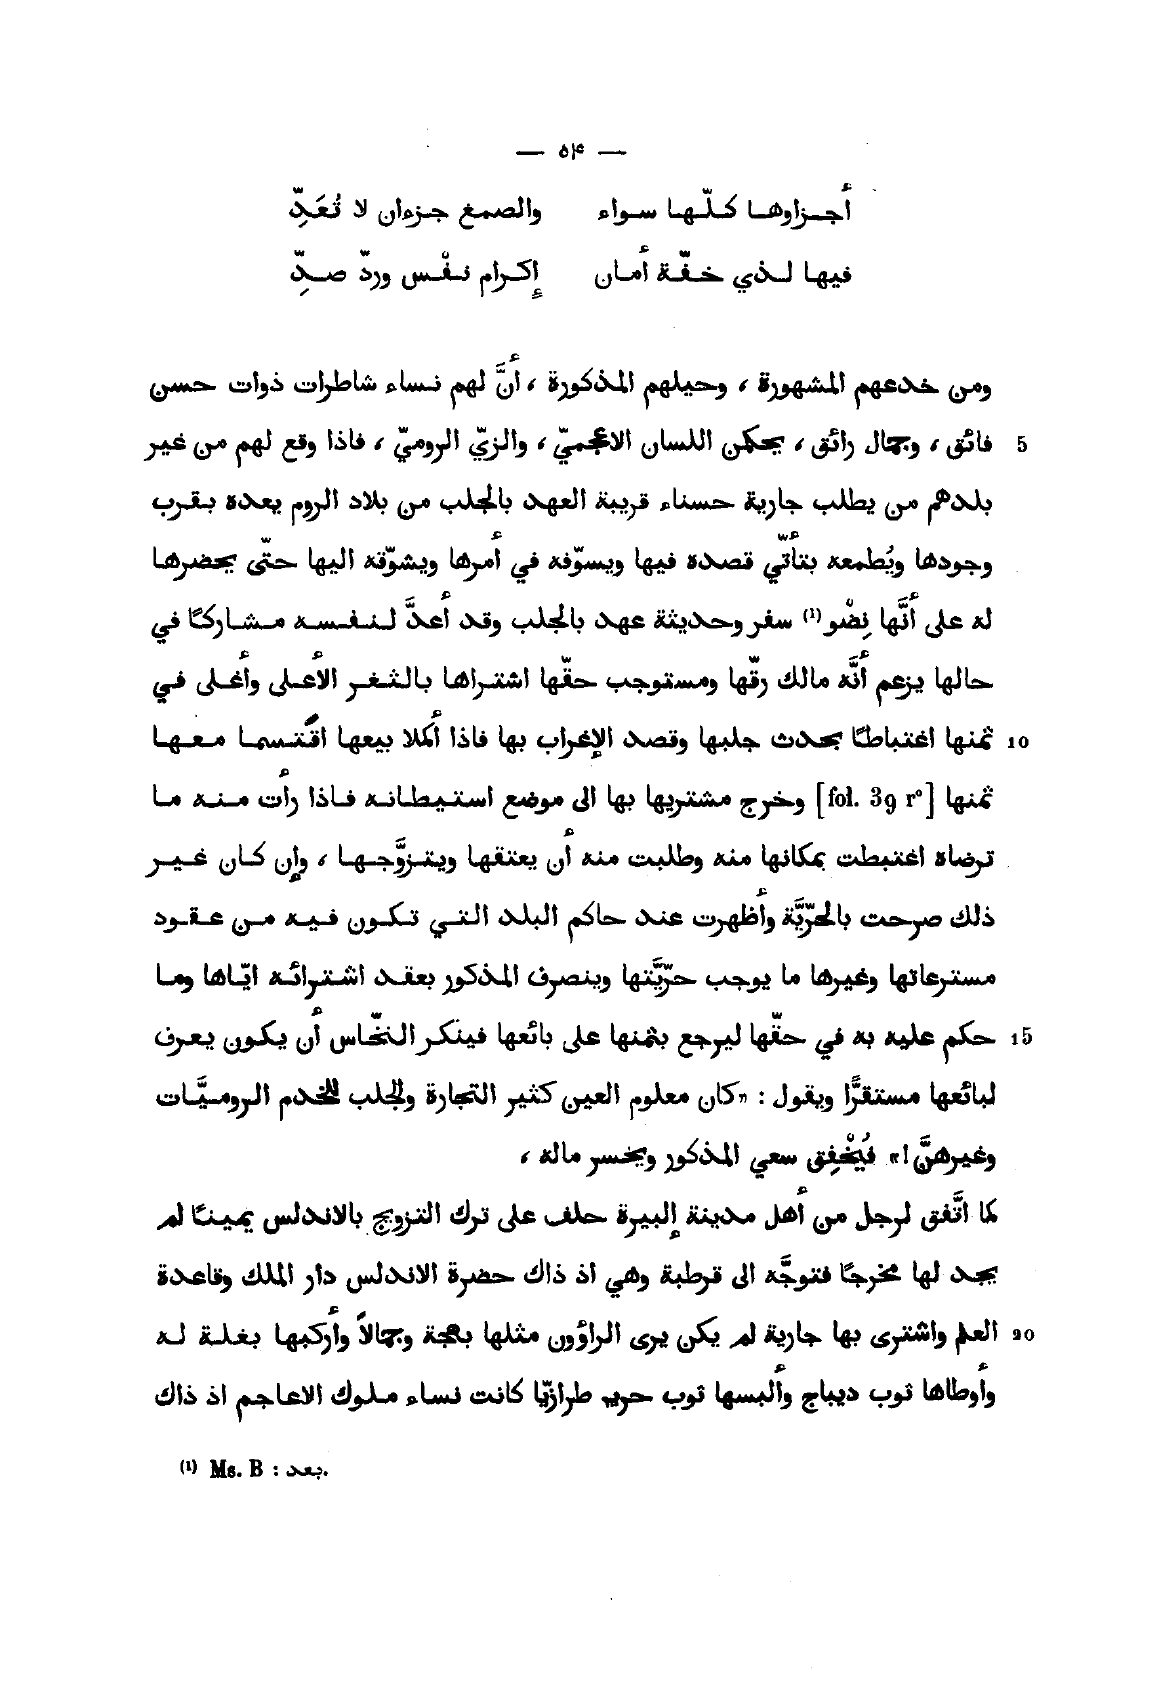 — ٥٤ —
أجزاوها كلّها سواء والصمغ جزءان لا تُعَدِّ
فيها لذي خفّة أمان إكرام نفْس وردّ صدِّ
ومن خدعهم المشهورة ، وحيلهم المذكورة ، أنَّ لهم نساء شاطرات ذوات حسن
5 فائق ، وجمال رائق ، يحكمن اللسان الاعجميّ ، والزيّ الروميّ ، فاذا وقع لهم من غير
بلدهم من يطلب جارية حسناء قريبة العهد بالجلب من بلاد الروم يعده بقرب
وجودها ويُطمعه بتأتّي قصده فيها ويسوّفه في أمرها ويشوّقه اليها حتّى يحضرها
له على أنّها نِضْو (1) سفر وحديثة عهد بالجلب وقد أعدَّ لنفسه مشاركًا في
حالها يزعم أنّه مالك رقّها ومستوجب حقّها اشتراها بالثغر الأعلى وأغلى في
10 ثمنها اغتباطًا بحدث جلبها وقصد الإغراب بها فاذا أكملا بيعها اقتسما معها
ثمنها [fol. 39 r°] وخرج مشتريها بها الى موضع استيطانه فاذا رأت منه ما
ترضاه اغتبطت بمكانها منه وطلبت منه أن يعتقها ويتزوَّجها ، وإن كان غير
ذلك صرحت بالحرّيَّة وأظهرت عند حاكم البلد التي تكون فيه من عقود
مسترعاتها وغيرها ما يوجب حرّيَّتها وينصرف المذكور بعقد اشترائه ايّاها وما
15 حكم عليه به في حقّها ليرجع بثمنها على بائعها فينكر النخّاس أن يكون يعرف
لبائعها مستقرًّا ويقول : «كان معلوم العين كثير التجارة والجلب للخدم الروميَّات
وغيرهنَّ !» فيُخْفِق سعي المذكور ويخسر ماله ،
كما اتَّفق لرجل من أهل مدينة إلبيرة حلف على ترك التزويج بالاندلس يمينًا لم
يجد لها مخرجًا فتوجَّه الى قرطبة وهي اذ ذاك حضرة الاندلس دار الملك وقاعدة
20 العلم واشترى بها جارية لم يكن يرى الراؤون مثلها بهجة وجمالًا وأركبها بغلة له
وأوطاها ثوب ديباج وألبسها ثوب حرير طرازيّا كانت نساء ملوك الاعاجم اذ ذاك
(1) Ms. B : بعد.